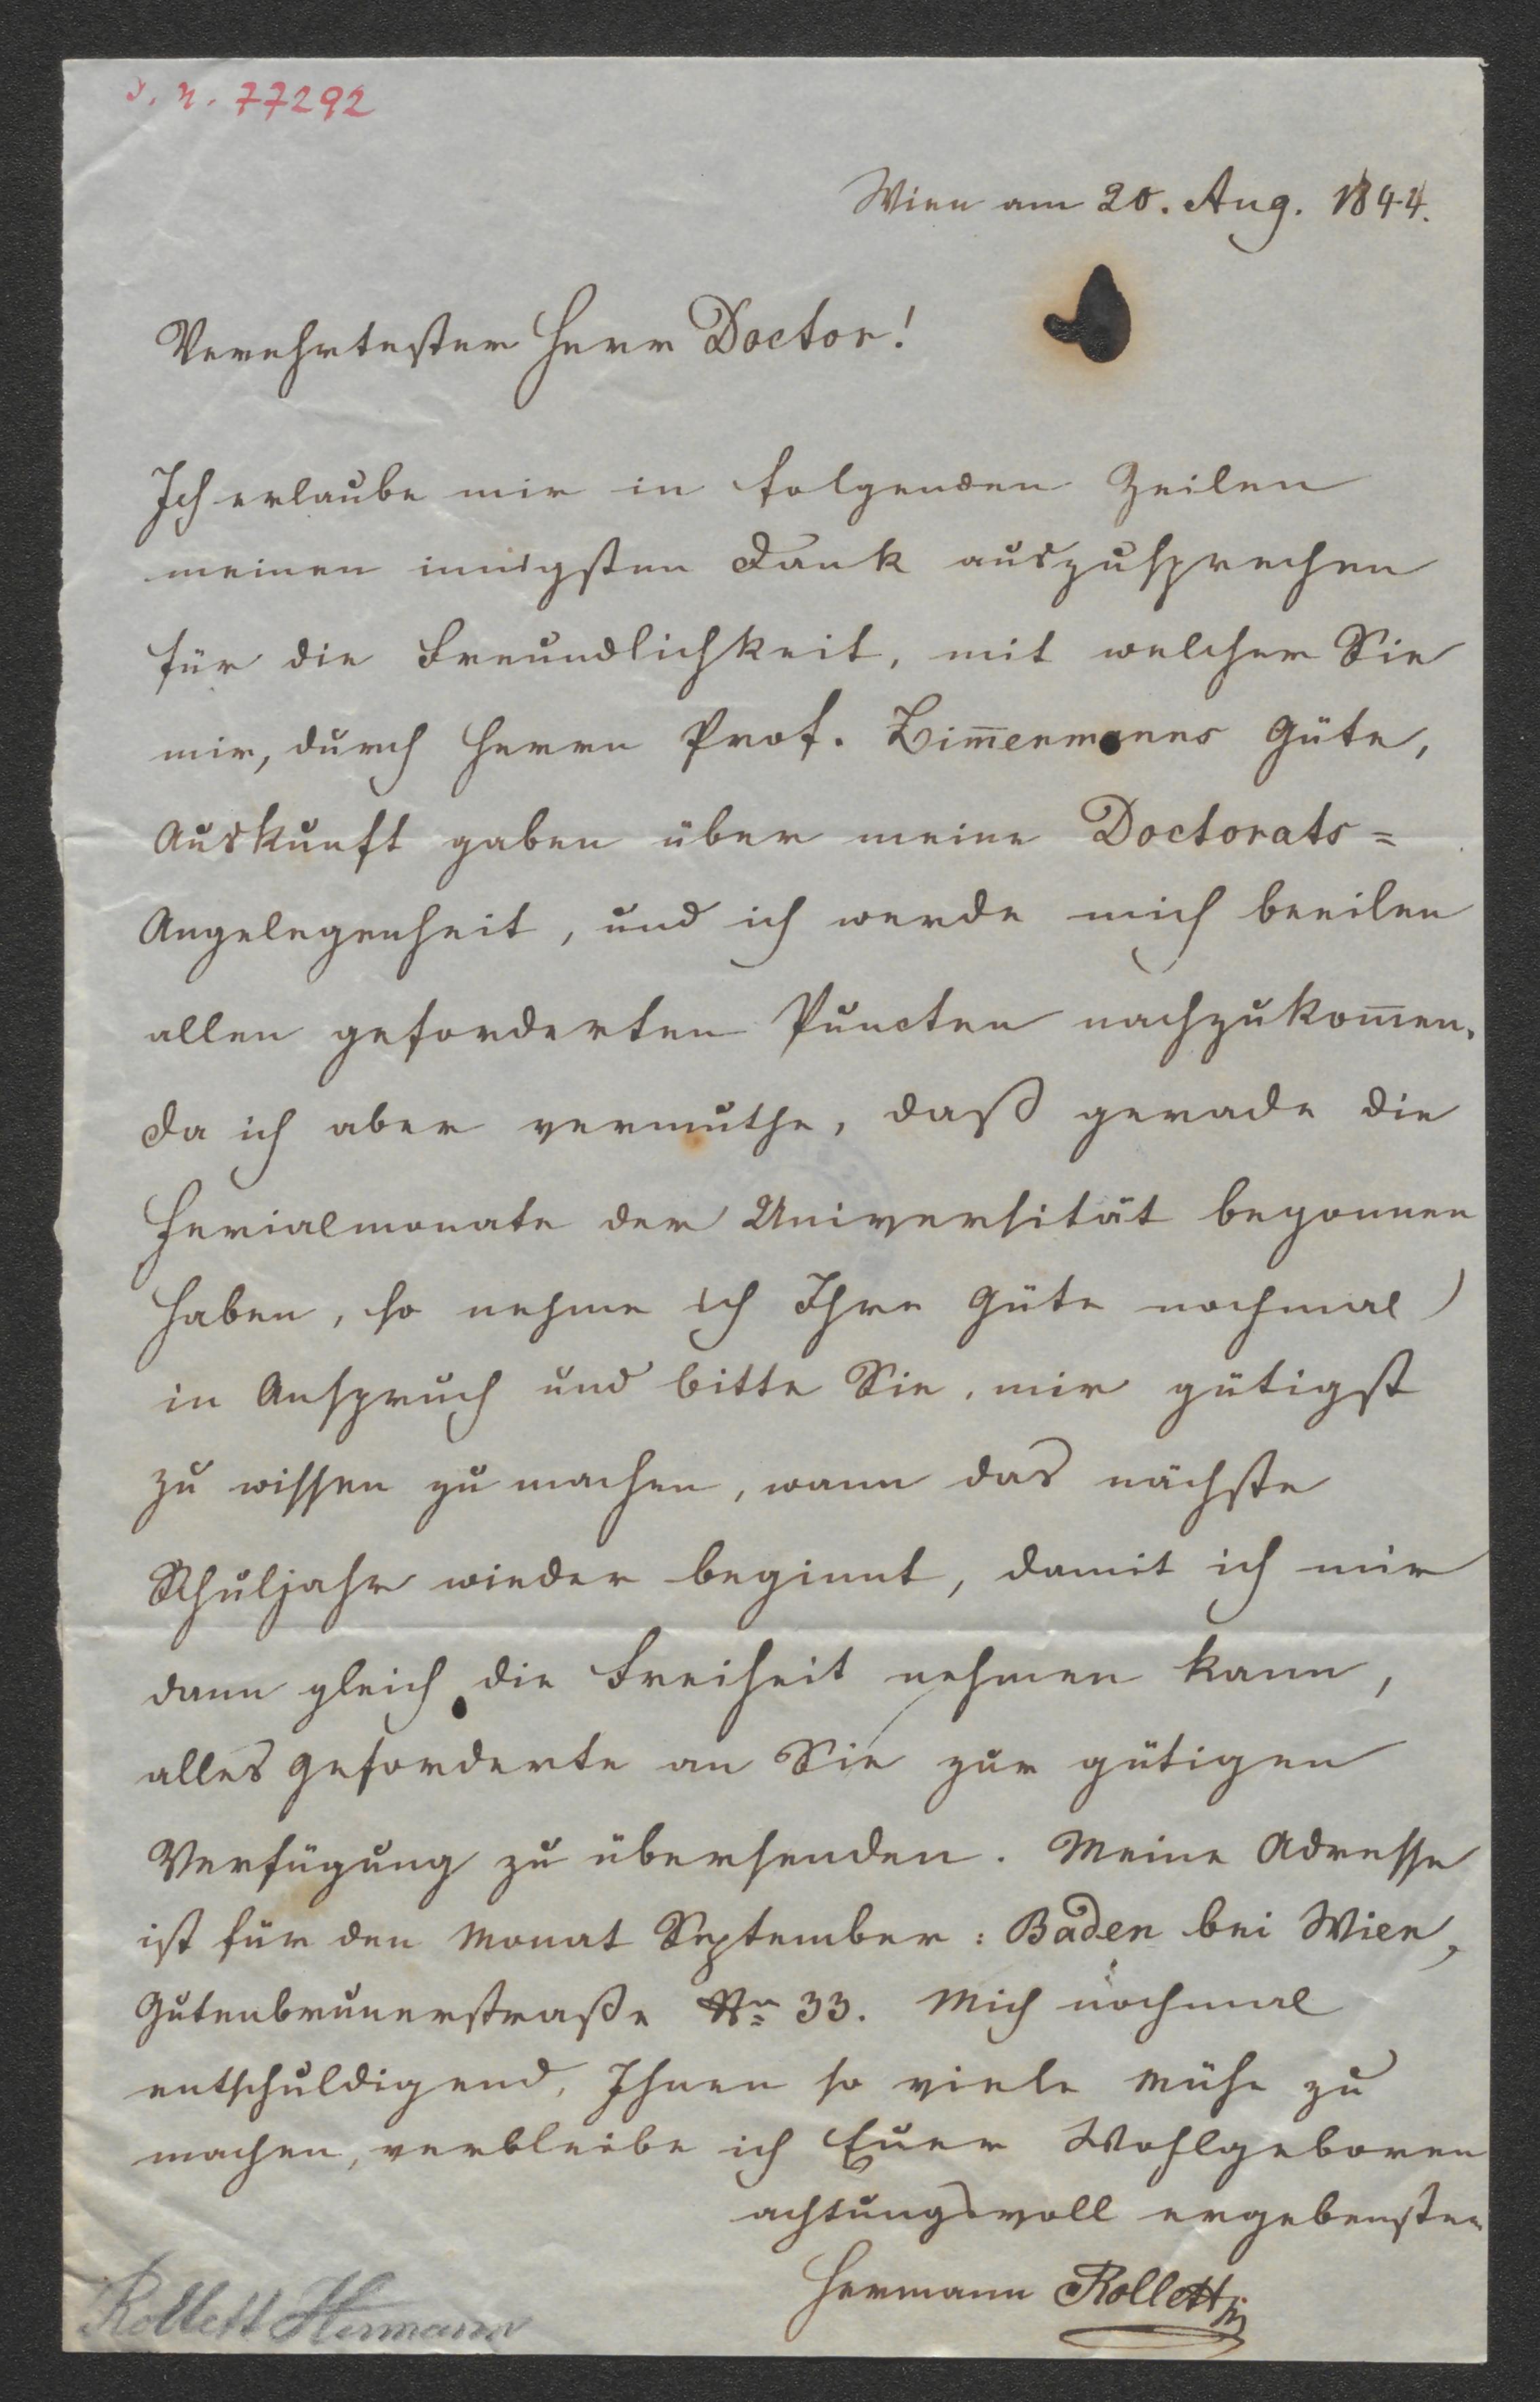 J. N. 77292
Wien am 20. Aug. 1844.
Verehrtester Herr Doctor!
Ich erlaube mir in folgenden Zeilen
meinen innigsten Dank auszusprechen
für die Freundlichkeit, mit welcher Sie
mir, durch Herrn Prof. Zim̅ermanns Güte,
Auskunft gaben über meine Doctorats=
Angelegenheit, und ich werde mich beeilen
allen geforderten Puncten nachzukom̅en.
Da ich aber vermuthe, daß gerade die
Ferialmonate der Universität begonnen
haben, so nehme ich Ihre Güte nochmal
in Anspruch und bitte Sie, mir gütigst
zu wissen zu machen, wann das nächste
Schuljahr wieder beginnt, damit ich mir
dann gleich die Freiheit nehmen kann,
alles Geforderte an Sie zur gütigen
Verfügung zu übersenden. Meine Adresse
ist für den Monat September: Baden bei Wien,
Gutenbrunerstraße Nr 33. Mich nochmal
entschuldigend, Ihnen so viele Mühe zu
machen, verbleibe ich Euer Wohlgeboren
achtungsvoll ergebenster
Hermann Rollett
Rollett Hermann